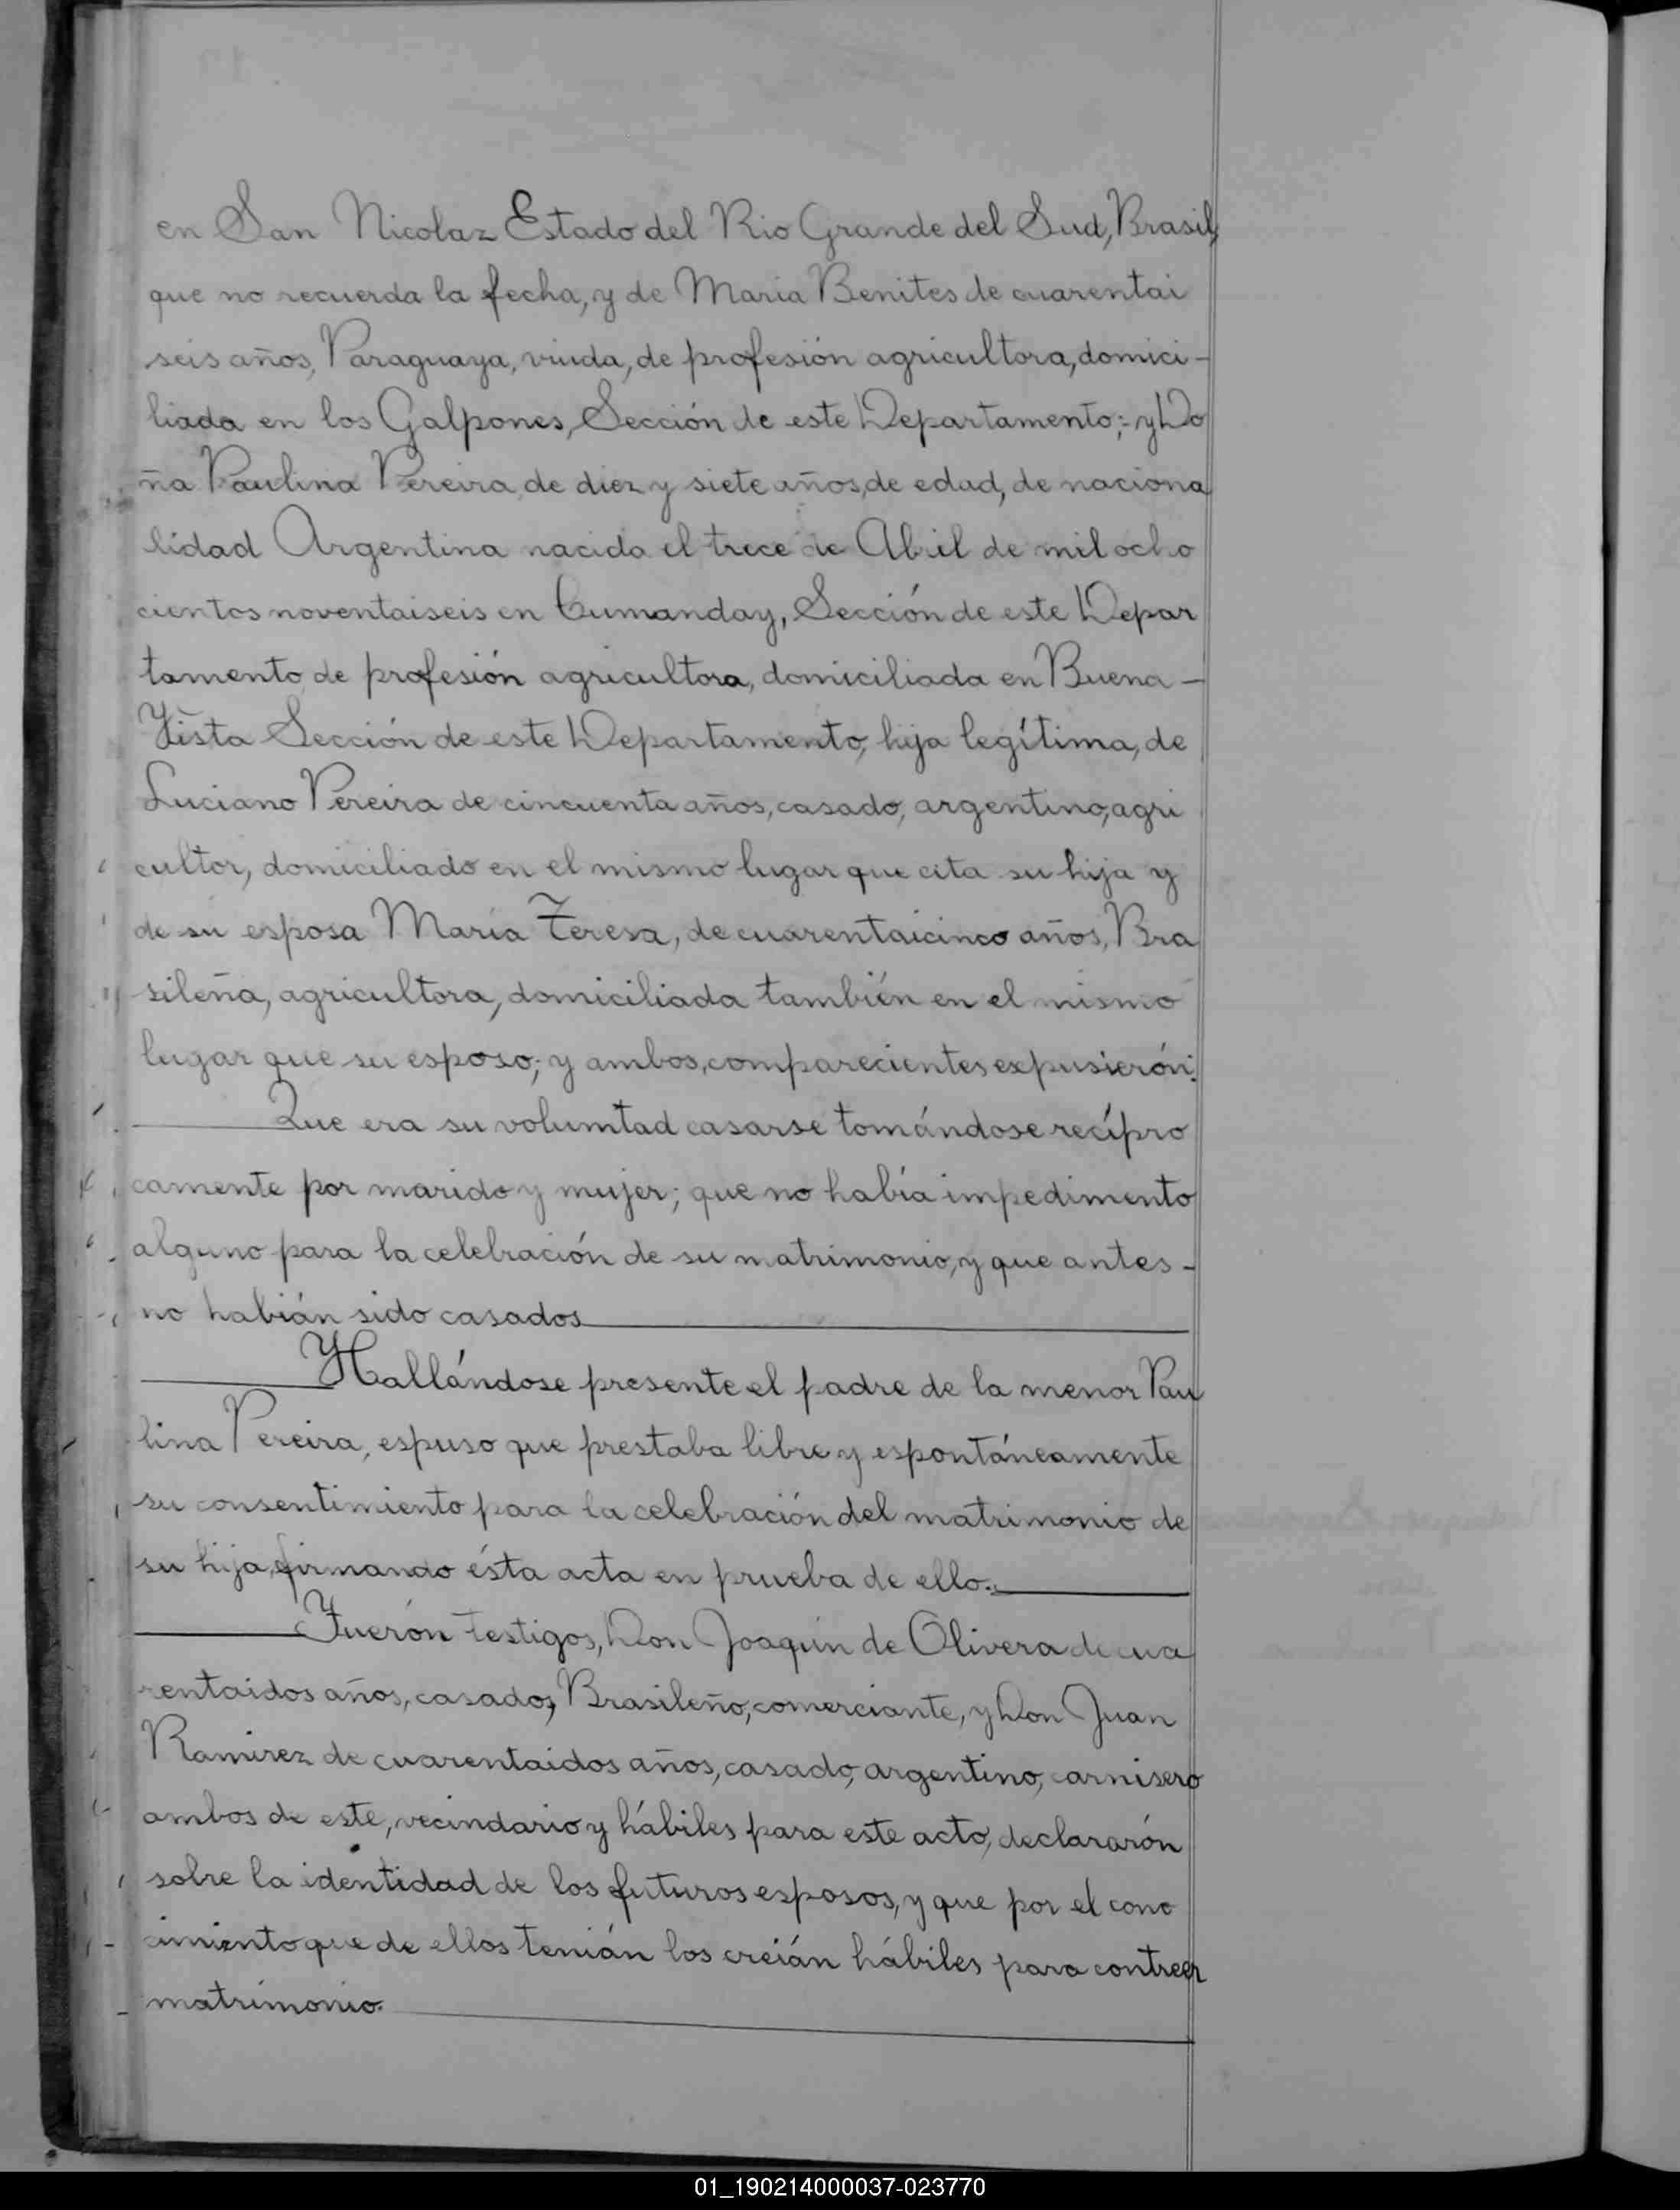 en San Nicolaz Estado del Rio Grande del Sud, Brasil,
que no recuerda la fecha, y de Maria Benites de cuarentai
seis años, Paraguaya, viuda, de profesión agricultora, domici-
liada en los Galpones, Sección de este Departamento;- y Do
ña Paulina Pereira, de diez y siete años, de edad, de naciona
lidad Argentina nacida el trece de Abril de mil ocho
cientos noventaiseis en Cumanday, Sección de este Depar
tamento de profesión agricultora, domiciliada en Buena-
Vista Sección de este Departamento, hija legítima, de
Luciano Pereira de cincuenta años, casado, argentino, agri
cultor, domiciliado en el mismo lugar que cita su hija y
de su esposa María Teresa, de cuarentaicinco años, Bra
sileña, agricultora, domiciliada también en el mismo
lugar que su esposo; y ambos, comparecientes expusierón:
Que era su volumtad casarse tomándose recípro
camente por marido y mujer; que no había impedimento
alguno para la celebración de su matrimonio, y que antes-
no habián sido casados
Hallándose presente el padre de la menor Pau
lina Pereira, espuso que prestaba libre y espontáneamente
su consentimiento para la celebración del matrimonio de
su hija, firmando ésta acta en prueba de ello.
Fuerón testigos, Don Joaquín de Olivera de cua
rentaidos años, casado, Brasileño, comerciante, y Don Juan
Ramirez de cuarentaidos años, casado, argentino, carnisero
ambos de este, vecindario y hábiles para este acto, declararón
sobre la identidad de los futuros esposos, y que por el cono
cimiento que de ellos tenián los creián hábiles para contreer
matrimonio.
01_190214000037-023770